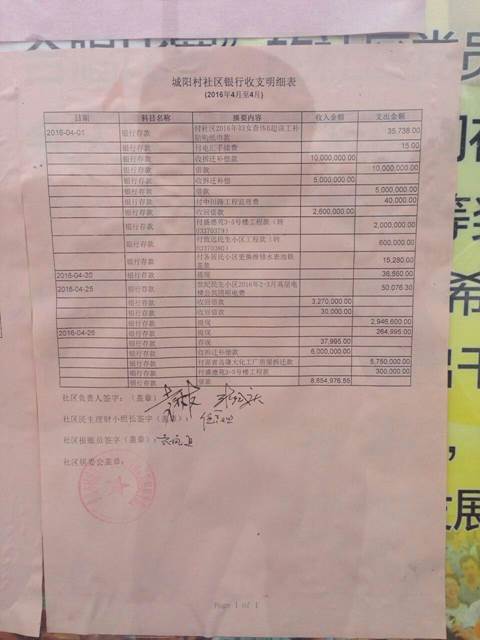 城阳村社区银行收支明细表
(2016年4月至4月)
日期 科目名称 摘要内容 收入金额 支出金额
2016-04-01 银行存款 付社区2016年妇女查体B超误工补 35,738.00
银行存款 付电汇手续费 15.00
银行存款 收拆迁补偿款 10,000,000.00
银行存款 借款 10,000,000.00
银行存款 收拆迁补偿 5,000,000.00
银行存款 借款 5,000,000.00
银行存款 付中川路工程监理费 40,000.00
银行存款 收回借款 2,600,000.00
银行存款 付盛德苑3-5号楼工程款(转 2,000,000.00
03370379)
银行存款 付致远民生小区工程款(转 600,000.00
03370380)
银行存款 付各居民小区更换维修水表池铁 15,280.00
盖款
2016-04-20 银行存款 提现 36,560.00
2016-04-25 银行存款 世纪民生小区2016年2-3月高层电 50,076.30
梯公共照明电费
银行存款 收回借款 3,270,000.00
银行存款 收回借款 30,000.00
银行存款 提现 2,946,600.00
2016-04-26 银行存款 提现 264,995.00
银行存款 存现 37,995.00
银行存款 收拆迁补偿款 6,000,000.00
银行存款 付青岛隆大化工厂房屋拆迁款 5,750,000.00
银行存款 付盛德苑3-5号楼工程款 300,000.00
银行存款 借款 8,654,976.55
社区负责人签字:(盖章)
社区民主理财小组长签字(盖章):
社区报账员签字(盖章):
社区居委会盖章:
Page 1 of 1